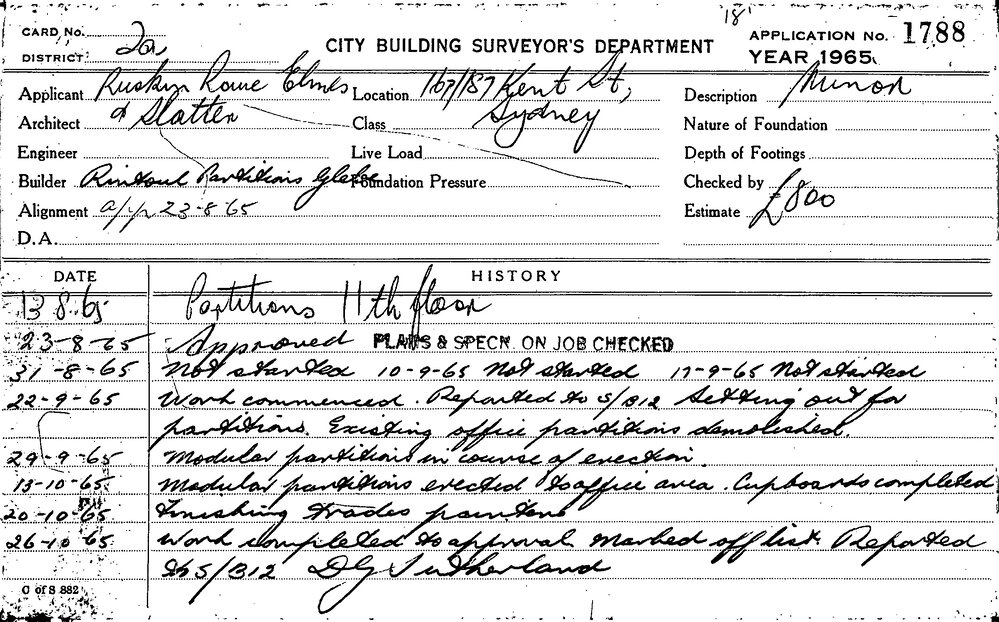 18'
CARD No.
DISTRICT
CITY BUILDING SURVEYOR'S DEPARTMENT
APPLICATION No. 1788
YEAR 1965
Applicant Ruskin Rowe Elmes
Location 163/187 Kent St,
Sydney
Description Minor
Architect & Slatter
Class
Nature of Foundation
Engineer
Live Load
Depth of Footings
Builder Rintoul Partitions Glebe
Foundation Pressure
Checked by
Alignment a/p 23-8-65
Estimate £800
D.A.
DATE HISTORY
13 8 65 Partitions 11th floor
23-8-65 Approved PLANS & SPECN. ON JOB CHECKED
31-8-65 Not started 10-9-65 Not started 17-9-65 Not started
22-9-65 Work commenced. Reported to S/B12 Setting out for
partitions. Existing office partitions demolished.
29-9-65 Modular partitions in course of erection.
13-10-65 Modular partitions erected to office area. Cupboards completed
20-10-65 Finishing trades painters
26-10 65 Work completed to approval marked off list. Reported
to S/B12 DG Sutherland
C of S 882